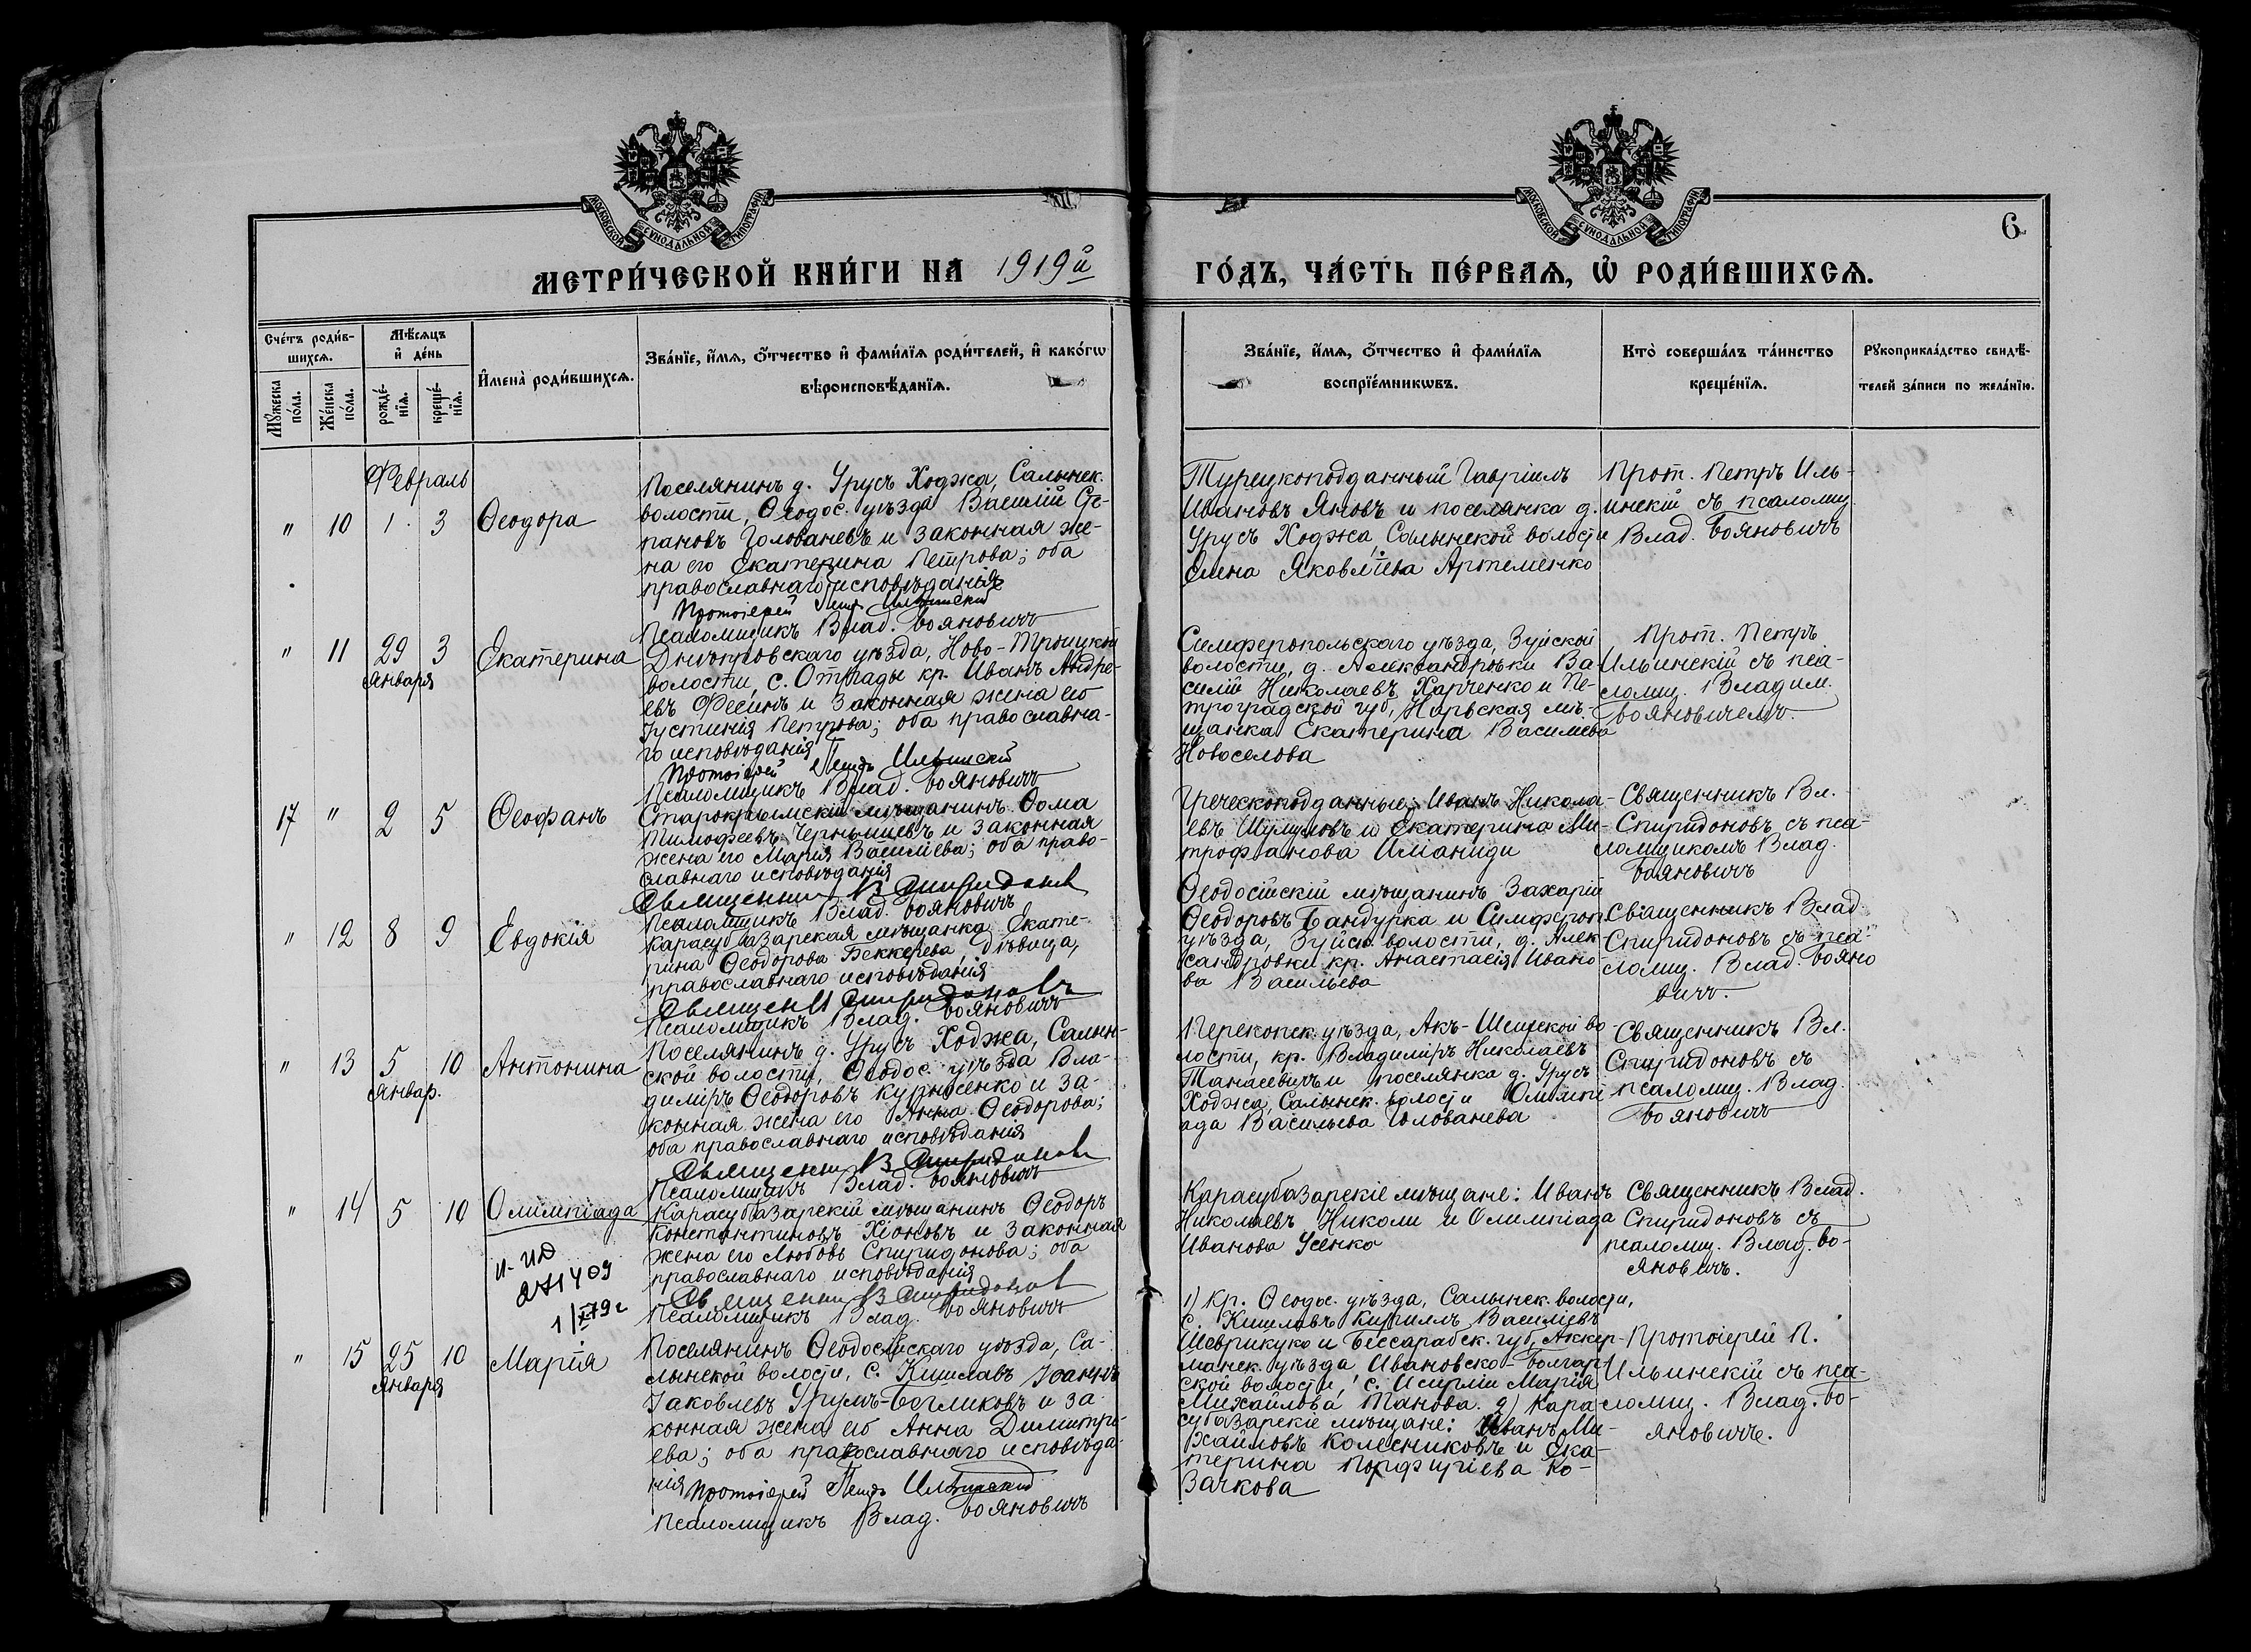 МОСКОВСКОЙ СѴНОДАЛЬНОЙ ТИПОГРАФІИ
МОСКОВСКОЙ СѴНОДАЛЬНОЙ ТИПОГРАФІИ
6
МЕТРИ́ЧЕСКОЙ КНИ́ГИ НА 1919й
ГО́ДЪ, ЧА́СТЬ ПЕ́РВАѦ, Ѡ҆ РОДИ́ВШИХСѦ.
Сче́тъ роди́в-
шихсѧ.
Мѣ́сѧцъ
и҆ де́нь
Мꙋ́жеска по́ла.
Же́нска по́ла.
рожде́-
нїѧ.
креще́-
нїѧ.
И҆мена̀ роди́вшихсѧ.
Зва́нїе, и҆́мѧ, ѻ҆́тчество и҆ фами́лїѧ роди́телей, и҆ како́гѡ
вѣроисповѣ́данїѧ.
Зва́нїе, и҆́мѧ, ѻ҆́тчество и҆ фами́лїѧ
воспрїе́мникѡвъ.
Кто̀ соверша́лъ та́инство
креще́нїѧ.
Рꙋкоприкла́дство свидѣ́-
телей за́писи по жела́нїю.
Февраль
" 10 1 3 Ѳеодора
Поселянинъ д. Урусъ Ходжа, Салынск.
волости, Ѳеодос. уѣзда Василій Сте-
пановъ Голованевъ и законная же-
на его Екатерина Петрова; оба
православнаго исповѣданія
Протоіерей Петръ Ильинскій
Псаломщикъ Влад. Бояновичъ
Турецкоподданный Гавріилъ
Ивановъ Яновъ и поселянка д.
Урусъ Ходжа, Салынской волости
Елена Яковлева Артеменко
Прот. Петръ Иль-
инскій съ псаломщ.
Влад. Бояновичъ
" 11 29 3 Екатерина
Января
Днѣпровскаго уѣзда, Ново-Троицкой
волости, с. Отрады кр. Иванъ Андре-
евъ Фесинъ и законная жена его
Іустинія Петрова; оба православна-
го исповѣданія
Протоіерей Петръ Ильинскій
Псаломщикъ Влад. Бояновичъ
Симферопольскаго уѣзда, Зуйской
волости, д. Александровки Ва-
силій Николаевъ Харченко и Пе-
троградской губ, Нарвская мѣ-
щанка Екатерина Васильева
Новоселова
Прот. Петръ
Ильинскій съ пса-
ломщ. Владим.
Бояновичемъ.
17 " 2 5 Ѳеофанъ
Старокрымскій мѣщанинъ Ѳома
Тимофеевъ Чернышевъ и законная
жена его Марія Васильева; оба право-
славнаго исповѣданія
Священникъ В Спиридоновъ
Псаломщикъ Влад. Бояновичъ
Греческоподданные: Иванъ Никола-
евъ и Екатерина Ми-
трофанова
Священникъ Вл.
Спиридоновъ съ пса-
ломщикомъ Влад.
Бояновичъ
" 12 8 9 Евдокія
Карасубазарская мѣщанка Екате-
рина Ѳеодорова Беккерева, дѣвица,
православнаго исповѣданія
Священ В Спиридоновъ
Псаломщикъ Влад. Бояновичъ
Ѳеодосійскій мѣщанинъ Захарій
Ѳеодоровъ Бандурка и Симфероп.
уѣзда, Зуйск. волости, д. Алек-
сандровки кр. Анастасія Ивано-
ва Васильева
Священникъ Влад.
Спиридоновъ съ пса-
ломщ. Влад. Бояно
вичъ.
" 13 5 10 Антонина
Январ.
Поселянинъ д. Урусъ Ходжа, Салын-
ской волости, Ѳеодос. уѣзда Вла-
димиръ Ѳеодоровъ Курносенко и за-
конная жена его Анна Ѳеодорова;
оба православнаго исповѣданія
Священник В Спиридонов
Псаломщикъ Влад. Бояновичъ
Перекопск. уѣзда, Акъ-Шеихской во-
лости, кр. Владимиръ Николаевъ
Танасевичъ и поселянка д. Урусъ
Ходжа, Салынск. волости Олимпі
ада Васильева Голованева
Священникъ Вл.
Спиридоновъ съ
псаломщ. Влад.
Бояновичъ
" 14 5 10 Олимпіада
1/XI 79г
Карасубазарскій мѣщанинъ Ѳеодоръ
Константиновъ Хіоновъ и законная
жена его Любовь Спиридонова; оба
православнаго исповѣданія
Священник В Спиридонов
Псаломщикъ Влад. Бояновичъ
Карасубазарскіе мѣщане: Иванъ
Николаевъ Николи и Олимпіада
Иванова Усенко
Священникъ Влад.
Спиридоновъ съ
псаломщ. Влад. Бо-
яновичъ.
" 15 25 10 Марія
Января
Поселянинъ Ѳеодосійскаго уѣзда, Са-
лынской волости, с. Кишлавъ Іоаннъ
Іаковлевъ Урумъ-Бегликовъ и за
конная жена его Анна Димитрі-
ева; оба православнаго исповѣда-
нія Протоіерей Петръ Ильинскій
Псаломщикъ Влад. Бояновичъ
1) Кр. Ѳеодос. уѣзда, Салынск. волости,
с. Кишлавъ Кириллъ Васильевъ
и Бессарабск. губ, Аккер-
манск. уѣзда Ивановско-Болгар-
ской волости, с. Исерліи Марія
Михайлова Танова. 2) Кара
субазарскіе мѣщане: Иванъ Ми-
хайловъ Колесниковъ и Ека-
терина Порфиріева Ко-
зачкова
Протоіерей П.
Ильинскій съ пса-
ломщ. Влад. Бо-
яновичъ.